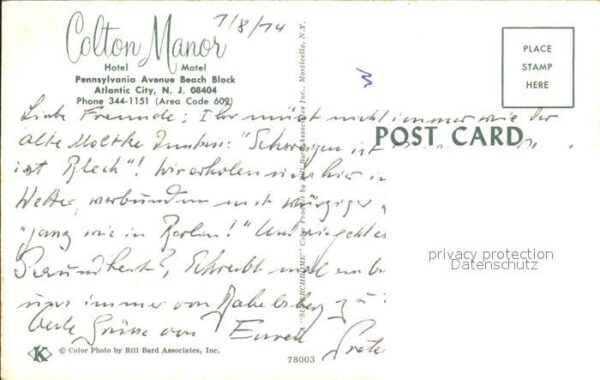 7/8/74
Colton Manor
Hotel Motel
Pennsylvania Avenue Beach Block
Atlantic City, N. J. 08404
Phone 344-1151 (Area Code 609)
PLACE
STAMP
HERE
Liebe Freunde: Ihr müsst nicht immer wie der
alte Moltke denken: "Schweigen ist
ist Blech"! Wir erholen uns hier in
Wetter, verbunden mit würziger
"ganz wie in Berlin!" Und wie geht es
Gesundheit? Schreibt mal
uns immer von Babelsberg zu
Gruesse von Euren
POST CARD
"SUPERCHROME" Color Product by Bill Bard Associates, Inc., Monticello, N.Y.
privacy protection
Datenschutz
K
© Color Photo by Bill Bard Associates, Inc.
78003